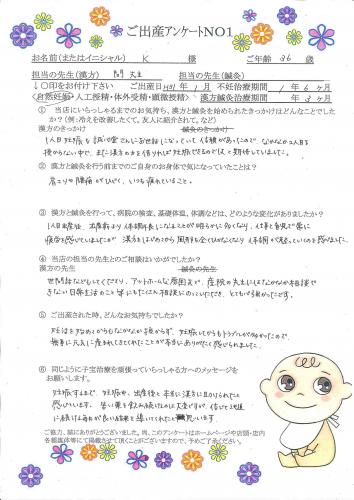 ご出産アンケートNO1
お名前(またはイニシャル) K 様 ご年齢 36 歳
担当の先生(漢方) 先生 担当の先生(鍼灸)
↓○印をお付け下さい ご出産日 H31 年 1 月 不妊治療期間 1 年 6 ヶ月
<自然妊娠・人工授精・体外受精・顕微授精> 漢方鍼灸治療期間 年 3 ヶ月
① 当店にいらっしゃるまでのお気持ち、漢方と鍼灸を始められたきっかけはどんなことでした
か?(例:冷えを改善したくて、友人に紹介されて、など)
漢方のきっかけ 鍼灸のきっかけ
1人目妊娠も誠心堂さんにお世話になっていて信頼があったので、なかなか2人目を
授からない中で、また漢方の力を借りれば妊娠できるのではと期待していました。
② 漢方と鍼灸を行う前までのご自身のお身体で気になっていたことは?
肩こりや腰痛がひどく、いつも疲れていること。
③ 漢方と鍼灸を行って、病院の検査、基礎体温、体調などは、どのような変化がありましたか?
1人目出産後、出産前より体調不良になることが明らかに多くなり、仕事と育児で常に
疲労を感じていましたが、漢方をはじめてから風邪をひくことがなくなり、体調が
④ 当店の担当の先生とのご相談はいかがでしたか?
漢方の先生 鍼灸の先生
世間話などもしてくださり、アットホームな雰囲気で、産院の先生にはなかなか相談で
きない日常生活のこと等にもたくさん相談にのっていただき、とても心強かったです。
⑤ ご出産された時、どんなお気持ちでしたか?
妊活を始めてからもなかなか授からず、妊娠してからもトラブルが多かったので、
無事に元気に産まれてきてくれたことが本当にありがたく感じられました。
⑥ 同じように子宝治療を頑張っていらっしゃる方へのメッセージを
お願いします。
妊娠するまで、妊娠中、出産後と本当に漢方に助けられたと
感じています。苦い薬を飲み続けるのは大変ですが、信じて3ヶ月
に続けてみれば良い結果を導いてくれると思います。
ご協力、誠にありがとうございました。尚、このアンケートはホームページや店頭・店内
各種媒体等にて掲載させて頂くことがございますので、予めご了承ください。